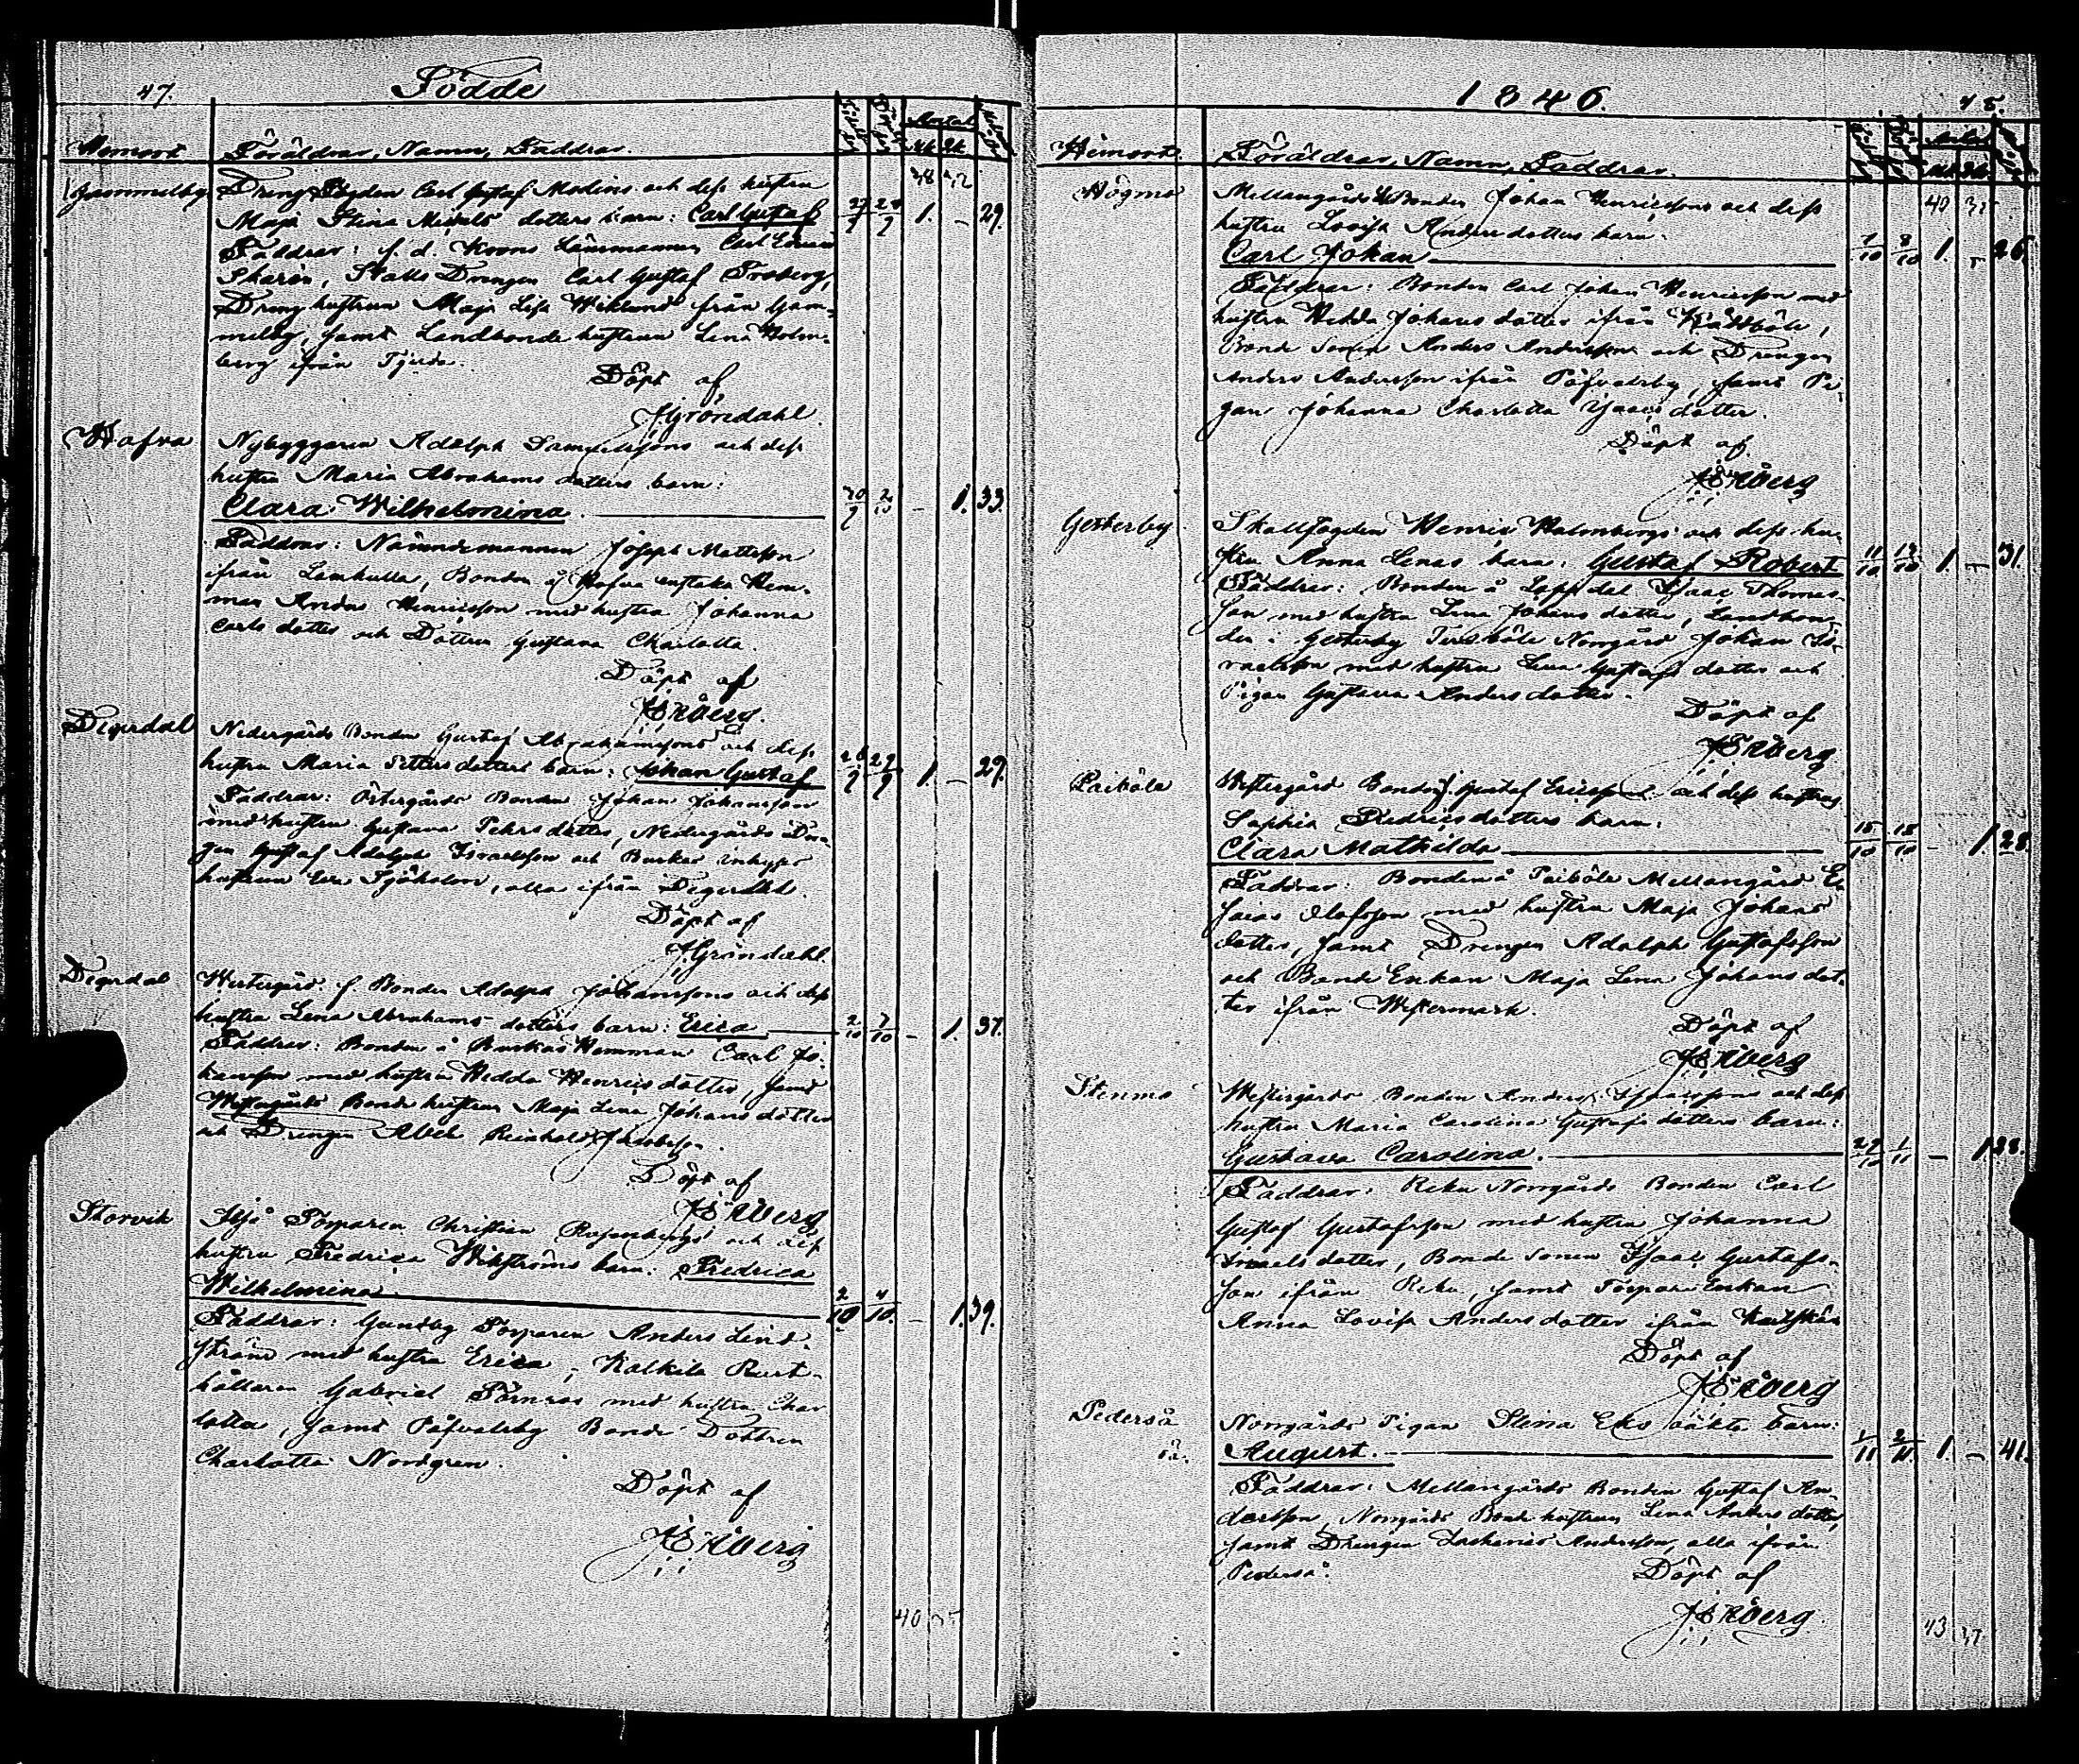 47. Födde
Hemort Föräldrar, Namn, Faddrar.
38 32
Gammelby Dreng Fogden Carl Gustaf Modins och dess hustru
Maja Stina Mickels dotters barn: Carl Gustaf 1. – 29.
Faddrar: f. d. Krono Länsmannen Carl Edvard
Skarin, Stalls Drengen Carl Gustaf Broberg,
Dreng hustrun Maja Lisa Wiklund från Gam-
melby, samt Landbonde hustrun Lena Holm-
berg ifrån Tjuda.
Döpt af
J Gröndahl.
Hafra Nybyggaren Adolph Samuelssons och dess
hustru Maria Abrahams dotters barn:
Clara Wilhelmina – 1. 33.
Faddrar: Nämndemannen Joseph Mattsson
ifrån Lamkulla, Bonden å Hafra enstaka Hem-
man Anders Henricsson med hustru Johanna
Carls dotter och Dottren Gustava Charlotta.
Döpt af
Öhberg.
Degerdal Nedergårds Bonden Gustaf Abrahamssons och dess
hustru Maria Petters dotters barn: Johan Gustaf 1. – 29.
Faddrar: Östergårds Bonden Johan Johansson
med hustru Gustava Pehrs dotter, Nedergårds Dren-
gen Gustaf Adolph Israelsson och Buskas inhyses
hustrun Eva Sjöholm, alla ifrån Degerdal.
Döpt af
J Gröndahl.
Degerdal Westergård f. Bonden Adolph Johanssons och dess
hustru Lena Abrahams dotters barn: Erica 2/10 7/10 – 1. 37.
Faddrar: Bonden å Buskas Hemman Carl Jo-
hansson med hustru Hedda Henrics dotter, samt
Westergårds Bonde hustrun Maja Lena Johans dotter
och Drengen Abel Reinhold Jacobsson.
Döpt af
Öhberg
Storvik Ilsjö Torparen Christian Rosenbergs och dess
hustru Fredrica Wikströms barn: Fredrica
Wilhelmina 2/10 4/10. – 1. 39.
Faddrar: Gundby Torparen Anders Lind-
ström med hustru Erica, Kalkila Rust-
hållaren Gabriel Törnros med hustru Char
lotta, samt Påfvalsby Bonde Dottren
Charlotta Nordgren.
Döpt af
Öhberg
40 35
1846. 48.
Hemort Föräldrar, Namn, Faddrar.
40 35
Högmo Mellangårds Bonden Johan Henricssons och dess
hustru Lovisa Anders dotters barn:
Carl Johan 1. – 26.
Faddrar: Bonden Carl Johan Henricsson med
hustru Hedda Johans dotter ifrån
Bonde Sonen Anders Andersson och Drengen
Anders Andersson ifrån Påfvalsby, samt Pi-
gan Johanna Charlotta Isaacs dotter.
Döpt af
Öhberg
Gesterby Skallfogden Henric Holmbergs och dess hu-
stru Anna Lenas barn: Gustaf Robert 11/10 12/10 1. – 31.
Faddrar: Bonden å Loppdal Isaac Thomas-
son med hustru Lena Johans dotter, Landbon-
den i Gesterby Norrgård Johan Is-
raelsson med hustru Lena Gustafs dotter och
Pigan Gustava Anders dotter.
Döpt af
Öhberg
Paiböle Westergård Bonden Gustaf Ericssons och dess hustrus
Sophia Fredrics dotters barn:
Clara Mathilda 15/10 18/10 – 1 28.
Faddrar: Bonden å Paiböle Mellangård Es
saias Olofsson med hustru Maja Johans
dotter, samt Drengen Adolph Gustafsson
och Bonde Enkan Maja Lena Johans dot-
ter ifrån Westermark.
Döpt af
Öhberg
Stenmo Westergårds Bonden Anders Isaacssons och dess
hustru Maria Carolina Gustafs dotters barn:
Gustava Carolina. 27/10 1/11 – 1 28.
Faddrar: Reku Norrgårds Bonden Carl
Gustaf Gustafsson med hustru Johanna
Israels dotter, Bonde Sonen Isaac Gustafs-
son ifrån Reku, samt Torpare Enkan
Anna Lovisa Anders dotter ifrån
Döpt af
Öhberg
Pederså Norrgårds Pigan Stina Eks oäkta barn:
oä. August. 1/11 2/11. 1. – 41.
Faddrar: Mellangårds Bonden Gustaf An-
dersson, Norrgårds Bonde hustrun Lena Anders dotter,
samt Drengen Zacharias Andersson, alla ifrån
Pederså.
Döpt af
Öhberg.
43 37